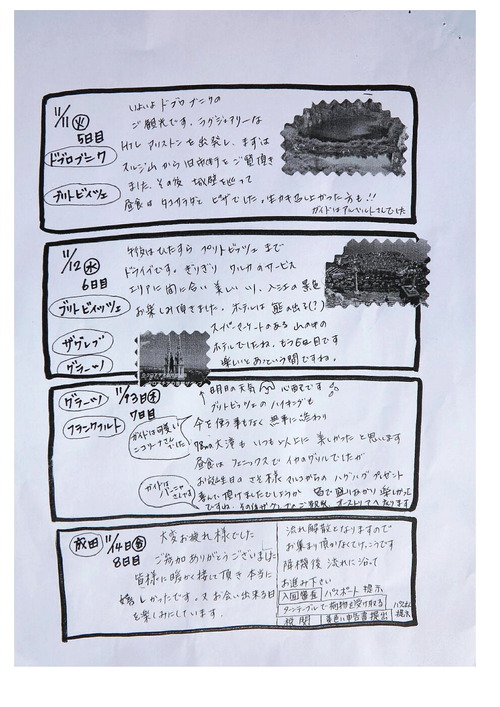 11/11 火
5日目
ドブロブニク
プリトビィツェ
いよいよドブロブニクの
ご観光です。ラグジュアリーな
を出発し、まずは
スルジ山から旧市街をご覧頂き
ました。その後 城壁を巡って
昼食は タコサラダと ピザでした。
ガイドは
でした
11/12 水
6日目
プリトビィッツェ
ザグレブ
グラーツ
午後はひたすら プリトビッツェ まで
ドライブです。ぎりぎり のサービス
エリアに間に合い 美しい 入江の景色
お楽しみ頂きました。ホテルは 熊の出る(?)
スーパーマーケットのある 山の中の
ホテルでしたね。もう6日目です
楽しいとあっという間ですね。
グラーツ
11/13 木
7日目
フランクフルト
ガイドは可愛い
ニコリーナさん
でした
ガイドは
さんです
↑ 明日の天気 心配です
プリトビッツェのハイキングも
傘を使う事もなく 無事に終わり
78mの大滝も いつも以上に 美しかったと思います
昼食は フェニックスで イカのグリルでしたが
お誕生日の 様 からの ハグハグプレゼント
楽しんで頂けましたでしょうか 皆で盛り上がり 楽しかった
ですね。その後ザグレブのご観光、オーストリアへ入ります
成田
11/14 金
8日目
大変お疲れ様でした
ご参加ありがとうございました
皆様に暖かく接して頂き 本当に
嬉しかったです。又お会い出来る日
を楽しみにしています。
流れ解散となりますので
お集まり頂かなくてけっこうです
降機後 流れに沿って
お進み下さい
入国審査 パスポート提示
ターンテーブルで荷物を受け取る
税関 黄色い申告書提出 パスポート
提示